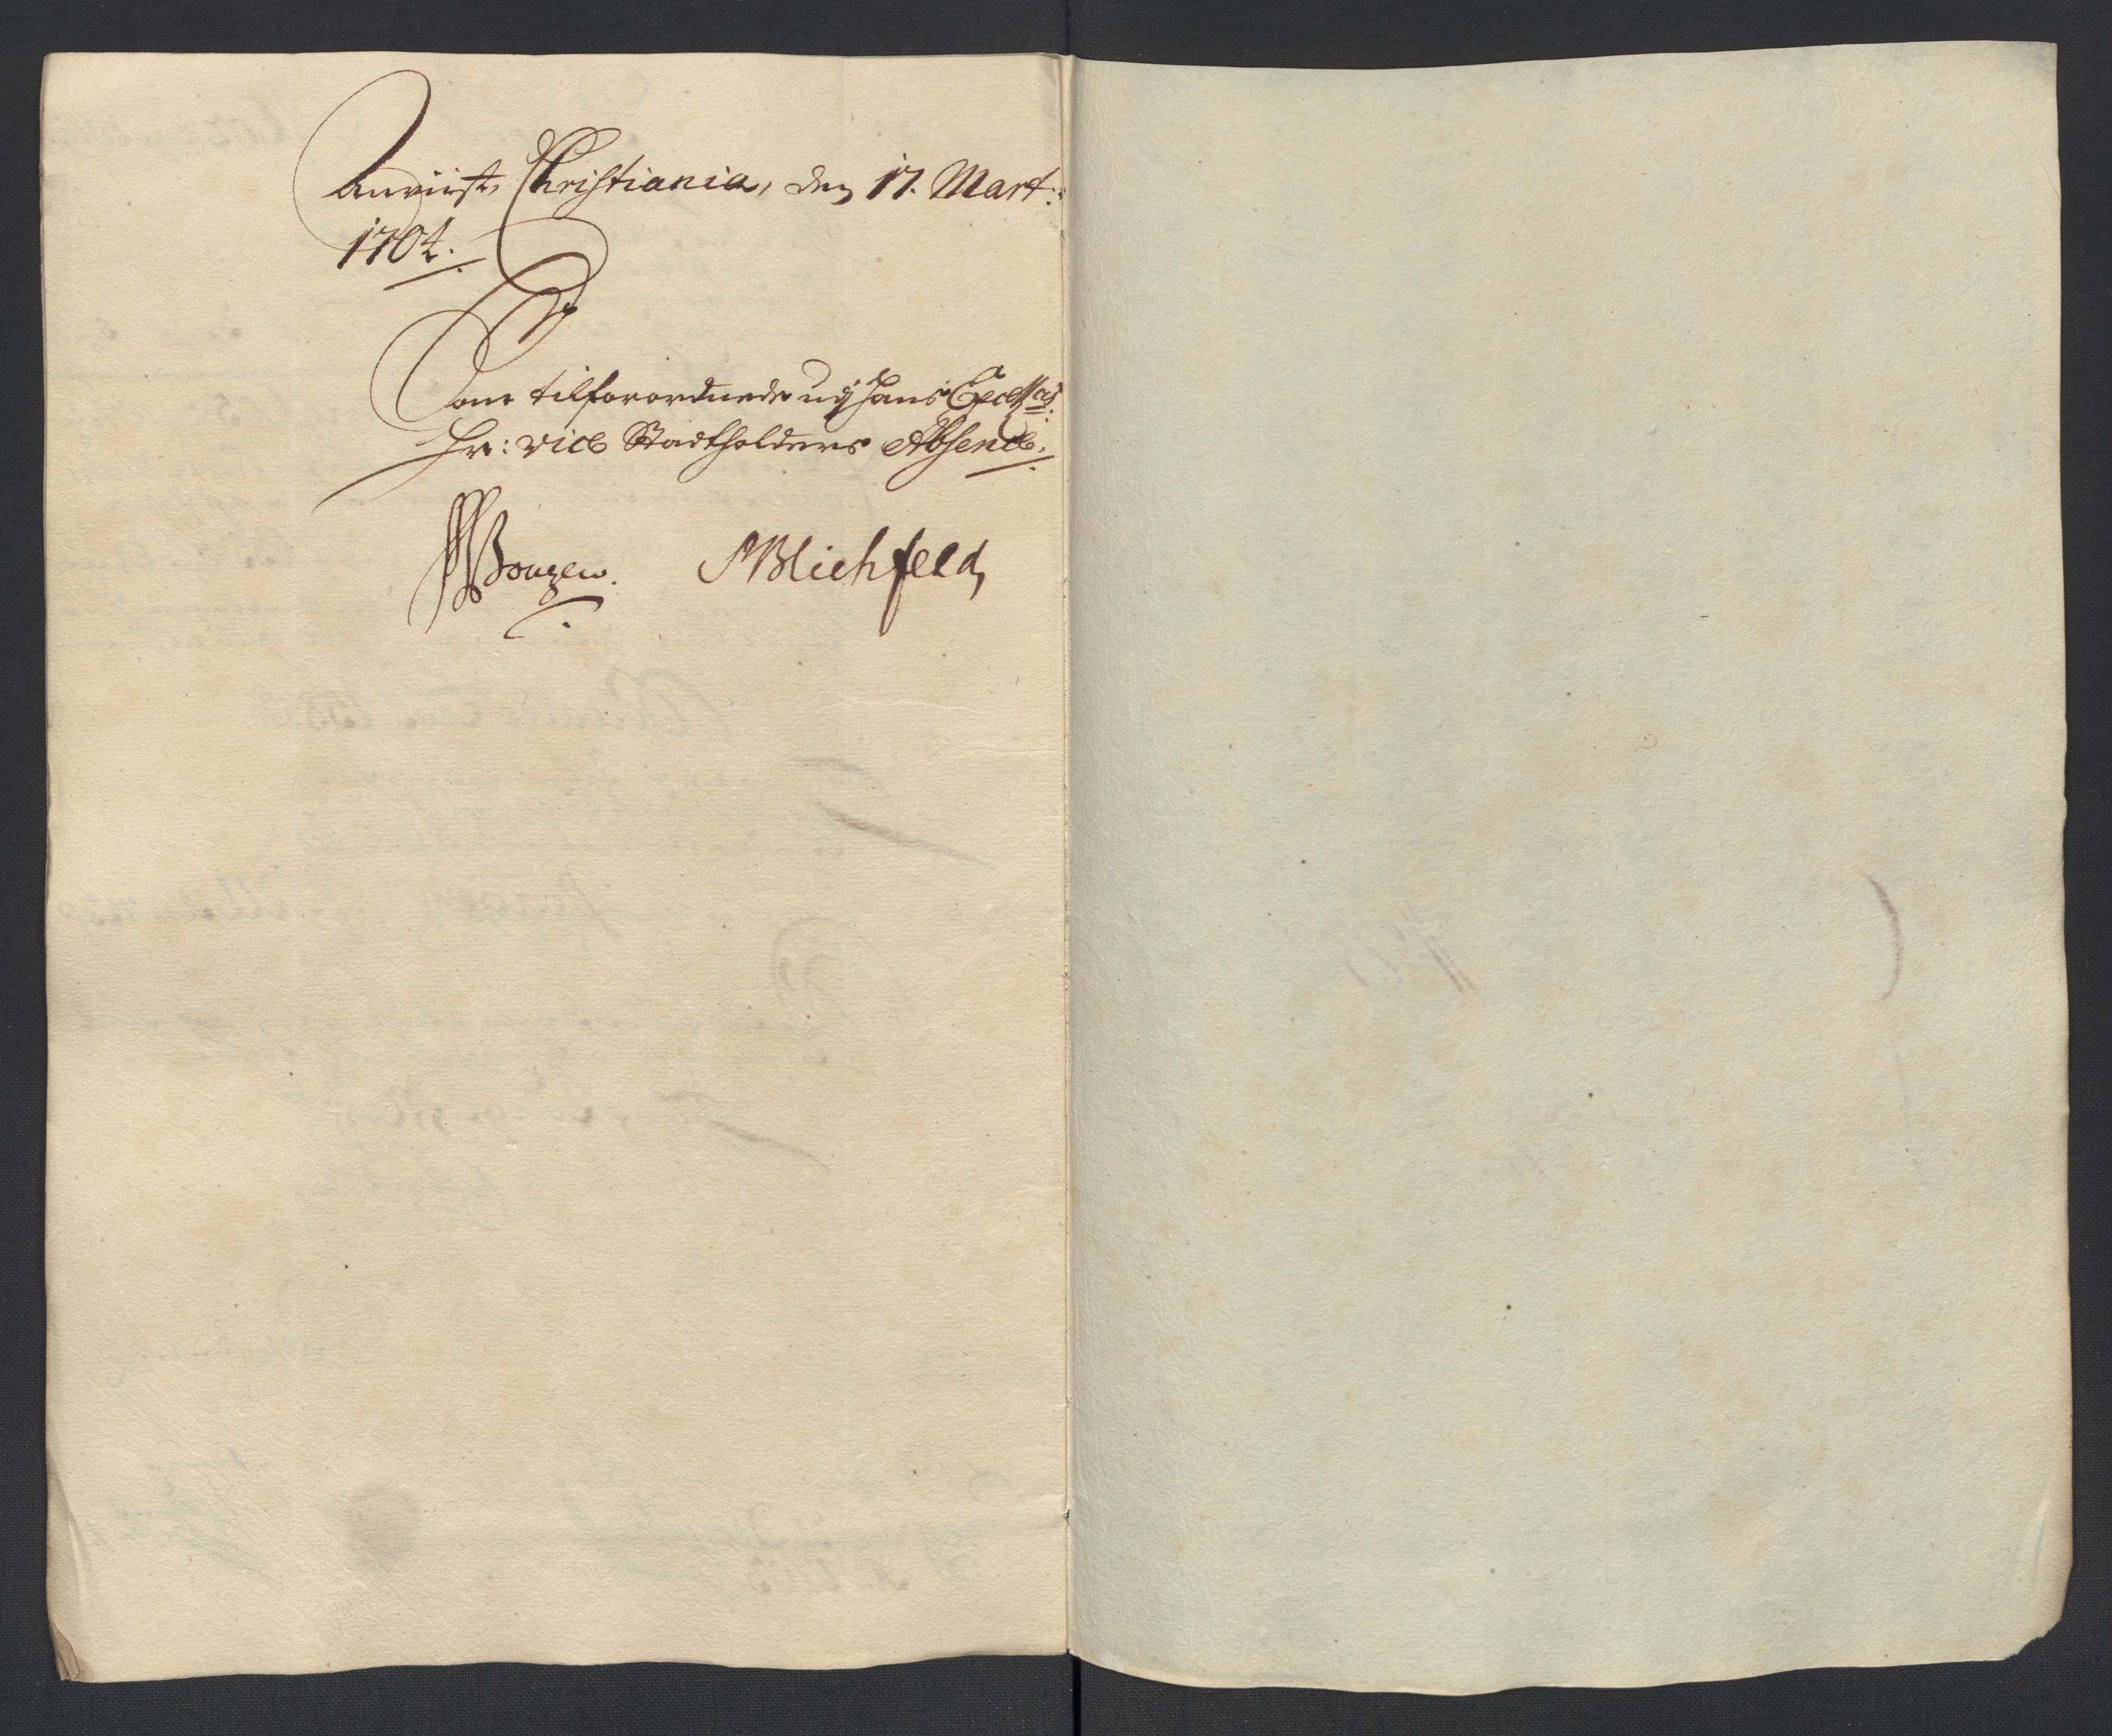 Anviist, Christiania, den 17. Mart:
1704.
Som tilforordnede udj hans Excell:
Hr: vice Stadtholders Absence.
Blichfeld